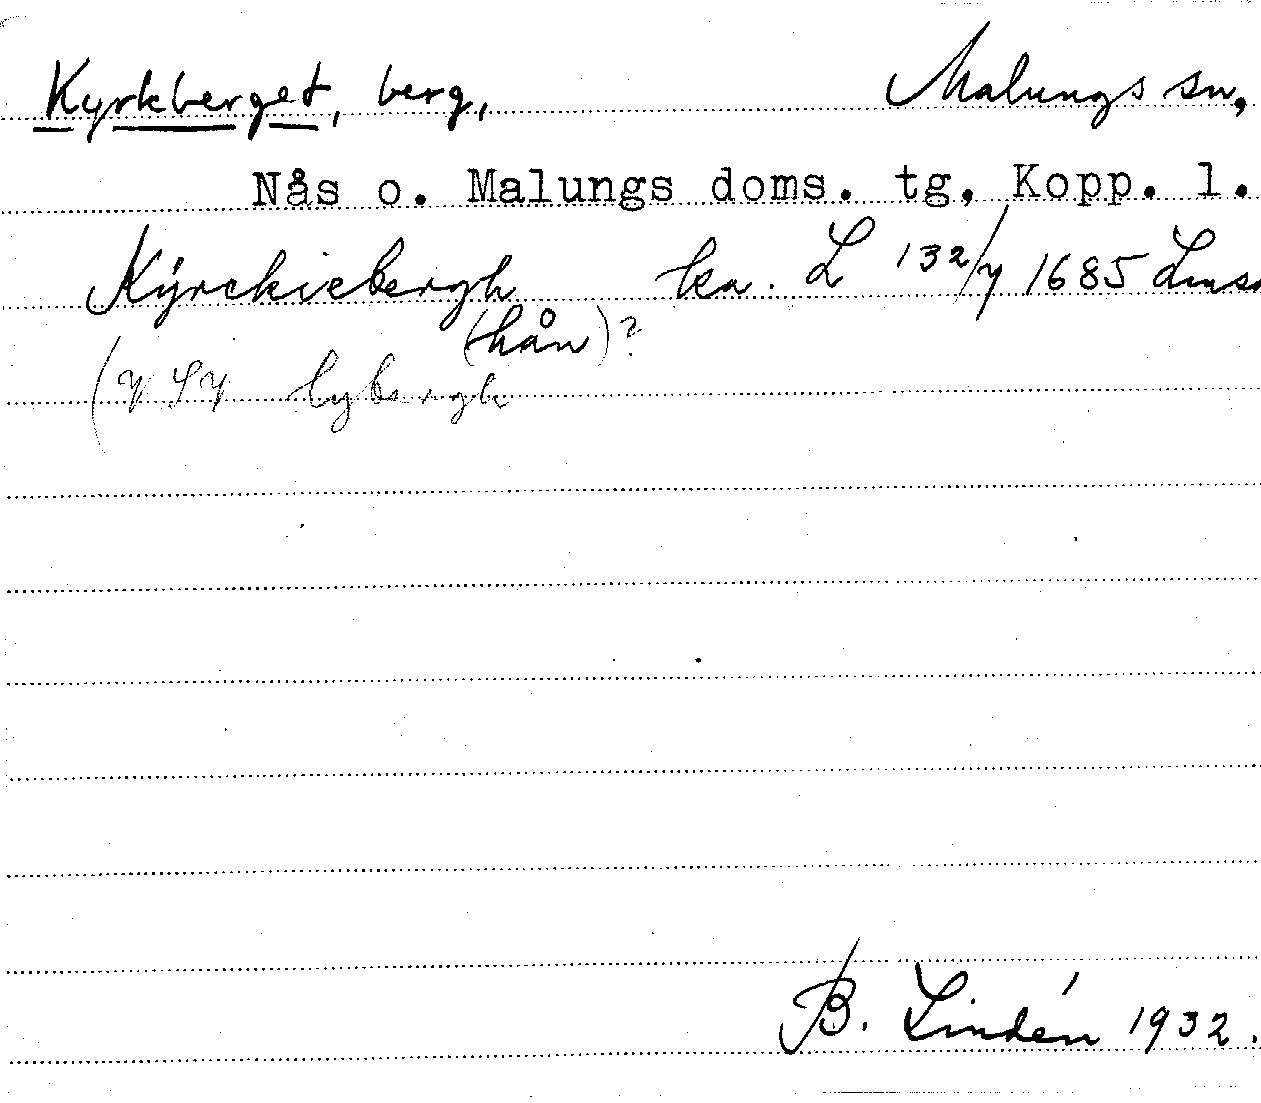 Kyrkberget, berg, Malungs sn,
Nås o. Malungs doms. tg, Kopp. l.
Kÿrckiebergh ka. L 132/7 1685 Lmsa
(hån)?
bybergh
B. Lindén 1932.